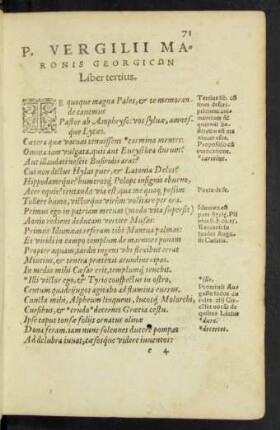 71
P. VERGILII MA-
RONIS GEORGICΩN
Liber tertius.
TE quoque magna Pales, & te memoran-
de canemus
Pastor ab Amphryso: vos syluæ, amnes-
que Lycæi.
Cætera quæ vacuas tenuissent *carmina mentes:
Omnia iam vulgata. quis aut Eurysthea durum:
Aut illaudati nescit Busiridis aras?
Cui non dictus Hylas puer, & Latonia Delos?
Hippodameque? humeroque Pelops insignis eburno,
Acer equis? tentanda via est qua me quoq; possim
Tollere humo, victorque virûm volitare per ora.
Primus ego in patriam mecum (modo vita supersit)
Aonio rediens deducam vertice Musas:
Primus Idumæas referam tibi Mantua palmas:
Et viridi in campo templum de marmore ponam
Propter aquam, tardis ingens vbi flexibus errat
Mincius, & tenera prætexit arundine ripas.
In medio mihi Cæsar erit, templumq; tenebit.
*Illi victor ego, & Tyrio conspectus in ostro,
Centum quadriiugos agitabo ad flumina currus.
Cuncta mihi, Alpheum linquens, lucosq; Molorchi,
Cursibus, & *crudo decernet Græcia cestu.
Ipse caput tonsæ foliis ornatus oliuæ
Dona feram. iam nunc solennes ducere pompas
Ad delubra iuuat, cæsosque videre iuuencos:
e 4
*carmine.
Poeta de se.
*Illis.
*duro.
*decertet.